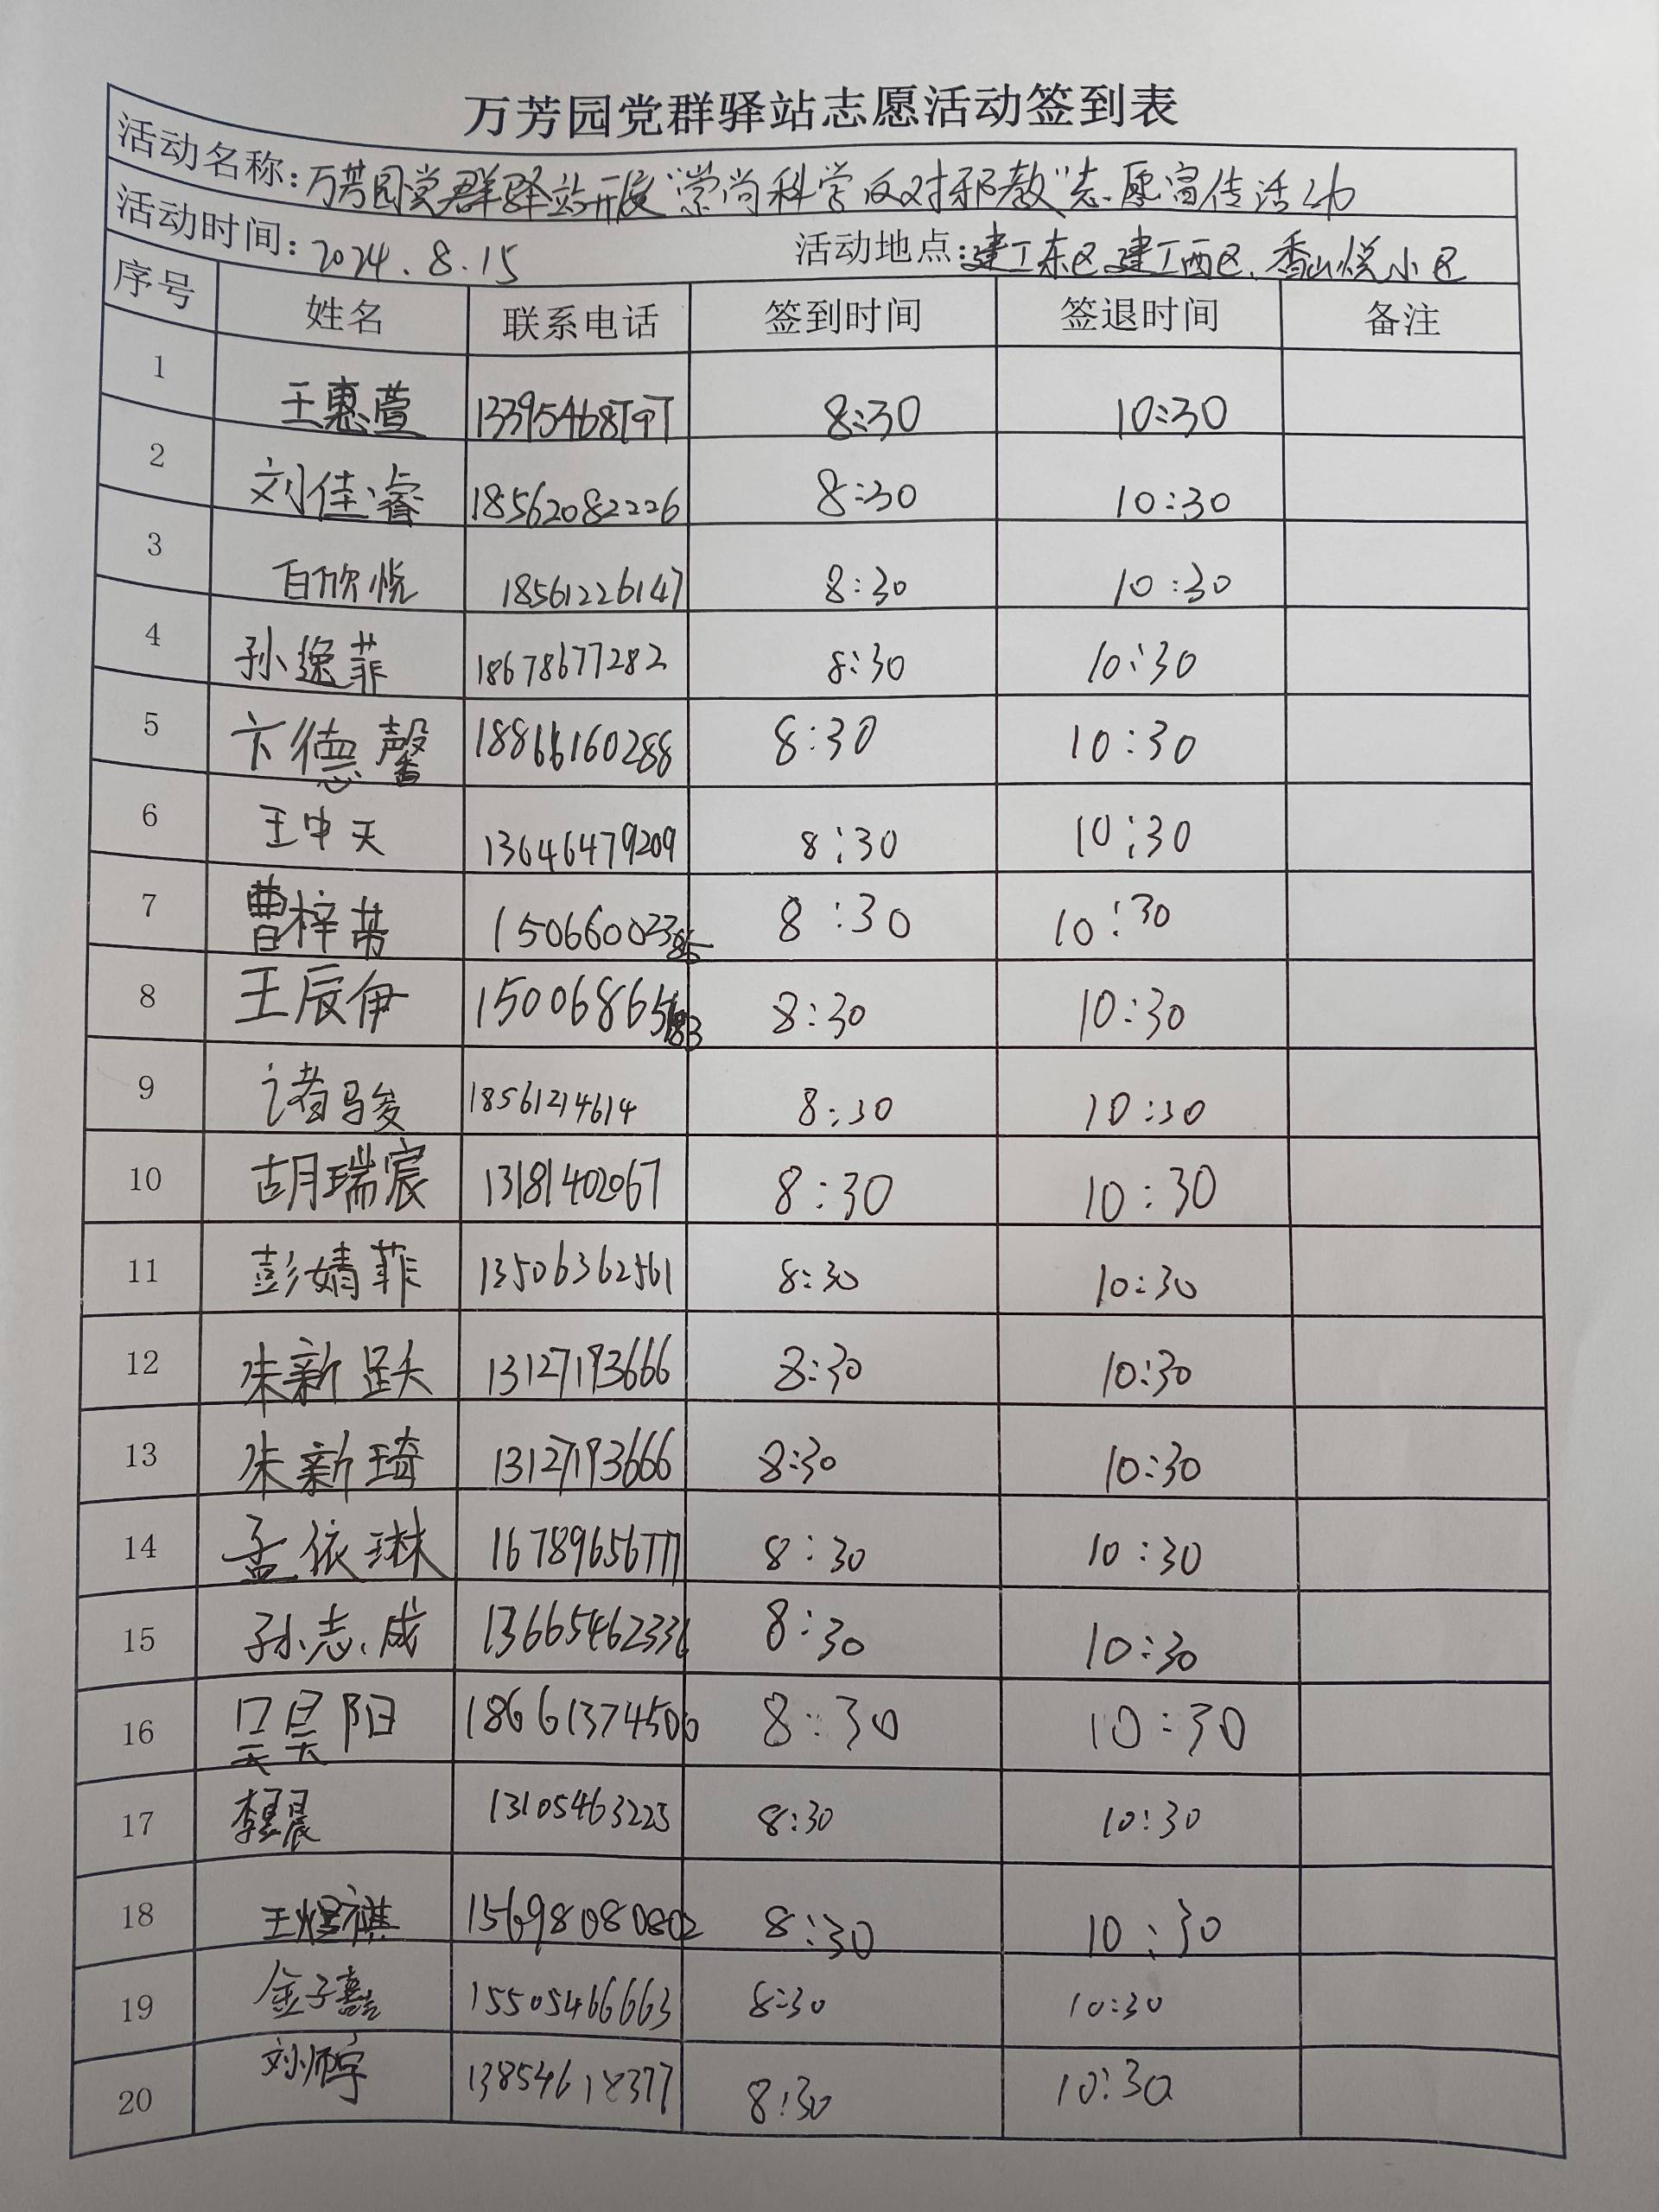 万芳园党群驿站志愿活动签到表
活动名称:万芳园党群驿站开展"崇尚科学反对邪教"志愿宣传活动
活动时间:2024.8.15 活动地点:建工东区建工西区.香山悦小区
序号 姓名 联系电话 签到时间 签退时间 备注
1 王惠萱 8:30 10:30
2 刘佳睿 18562082226 8:30 10:30
3 白欣悦 18561226147 8:30 10:30
4 孙逸菲 18678677282 8:30 10:30
5 卞德馨 18866160288 8:30 10:30
6 王中天 13646479209 8:30 10:30
7 曹梓 8:30 10:30
8 王辰伊 8:30 10:30
9 诸马骏 18561214614 8:30 10:30
10 胡瑞宸 13181402067 8:30 10:30
11 彭婧菲 13506362561 8:30 10:30
12 朱新跃 13127193666 8:30 10:30
13 朱新琦 13127193666 8:30 10:30
14 孟依琳 16789656777 8:30 10:30
15 孙志成 13665462336 8:30 10:30
16 吴昊阳 18661374506 8:30 10:30
17 13105463225 8:30 10:30
18 王煜祺 15698080802 8:30 10:30
19 金子 15505466663 8:30 10:30
20 8:30 10:30